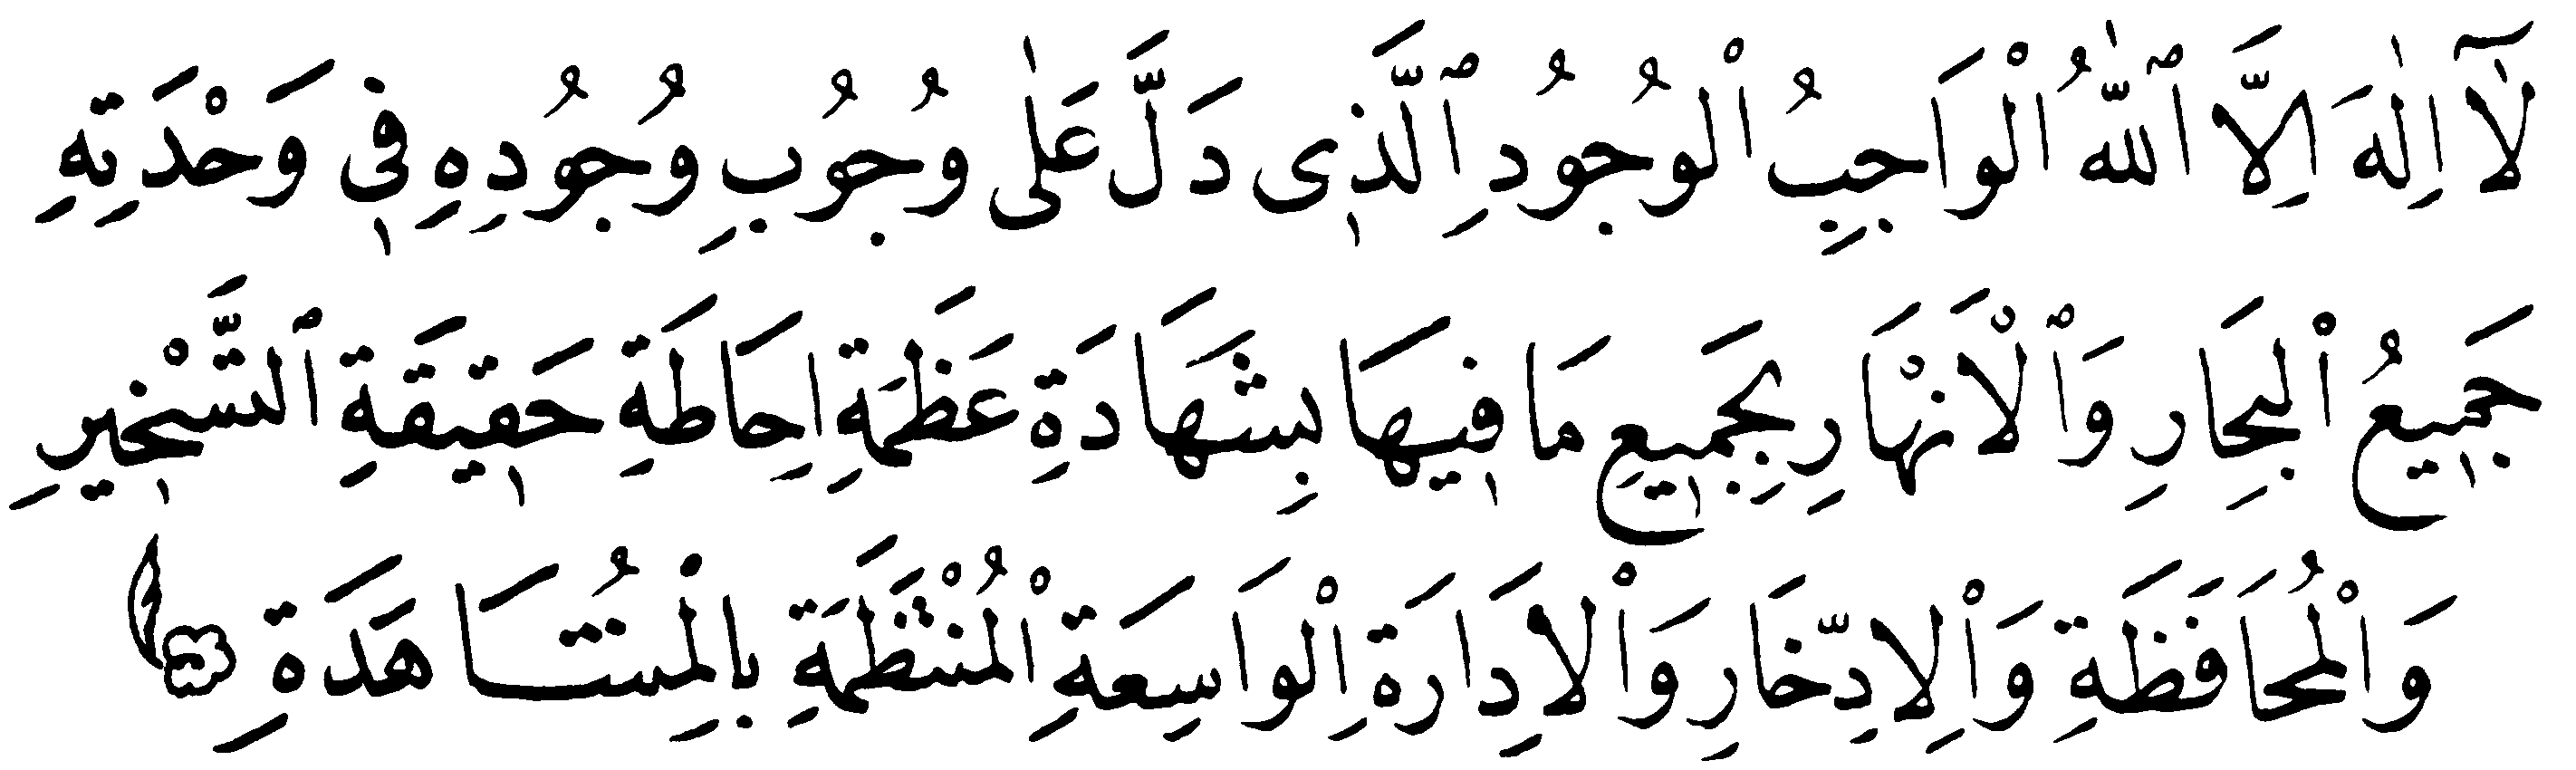 لَآ اِلٰهَ اِلَّا ٱللّٰهُ الْوَاجِبُ الْوُجُودِ ٱلَّذٖى دَلَّ عَلٰى وُجُوبِ وُجُودِهِ فٖى وَحْدَتِهِ
جَمٖيعُ الْبِحَارِ وَٱلْاَنْهَارِ بِجَمٖيعِ مَا فٖيهَا بِشَهَادَةِ عَظَمَةِ اِحَاطَةِ حَقٖيقَةِ ٱلتَّسْخٖيرِ
وَالْمُحَافَظَةِ وَالْاِدِّخَارِ وَالْاِدَارَةِ الْوَاسِعَةِ الْمُنْتَظَمَةِ بِالْمُشَاهَدَةِ